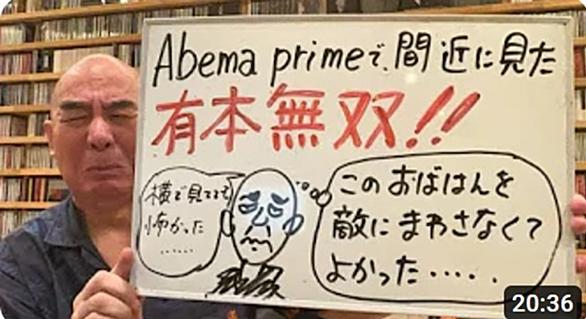 Abema primeで、間近に見た
有本無双!!
横で見てても
怖かった
……
このおばはんを
敵にまわさなくて
よかった・・・・・
20:36